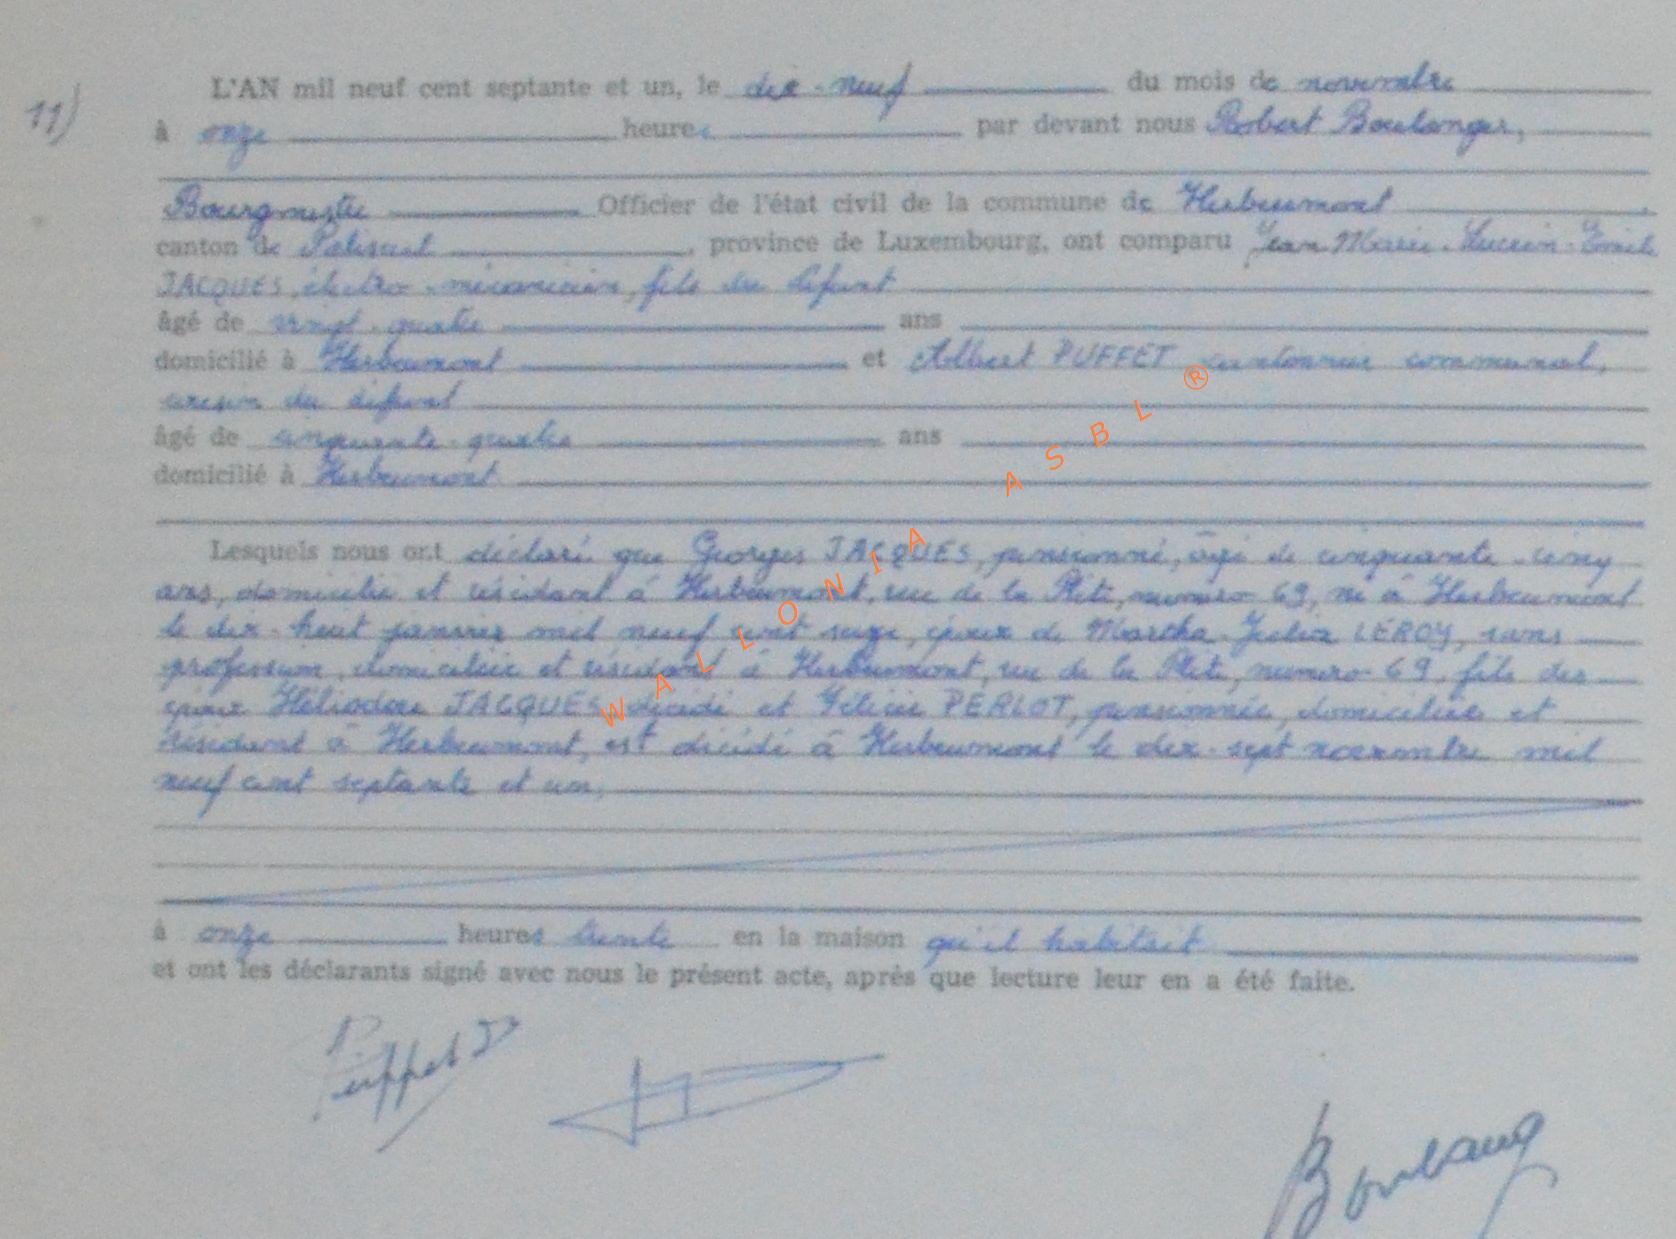 11)
L'AN mil neuf cent septante et un, le dix-neuf du mois de novembre
à onze heures par devant nous Robert Boulanger,
Bourgmestre Officier de l'état civil de la commune de Herbeumont
canton de Paliseul, province de Luxembourg, ont comparu Jean-Marie-Lucien-Emile
JACQUES, électro-mécanicien, fils du défunt
âgé de vingt-quatre ans
domicilié à Herbeumont et Albert PUFFET cantonnier communal,
voisin du défunt
âgé de cinquante-quatre ans
domicilié à Herbeumont
Lesquels nous ont déclaré que Georges JACQUES, pensionné, âgé de cinquante-cinq
ans, domicilié et résidant à Herbeumont, rue de la numéro 69, né à Herbeumont
le dix-huit janvier mil neuf cent seize, époux de Martha-Julia LEROY, sans
profession, domiciliée et résidant à Herbeumont, rue de la numéro 69, fils des
époux Héliodore JACQUES décédé et Félicie PERLOT, pensionnée, domiciliée et
résidant à Herbeumont, est décédé à Herbeumont le dix-sept novembre mil
neuf cent septante et un,
à onze heures trente en la maison qu'il habitait
et ont les déclarants signé avec nous le présent acte, après que lecture leur en a été faite.
Puffet
Boulang
WALLONIA ASBL ®